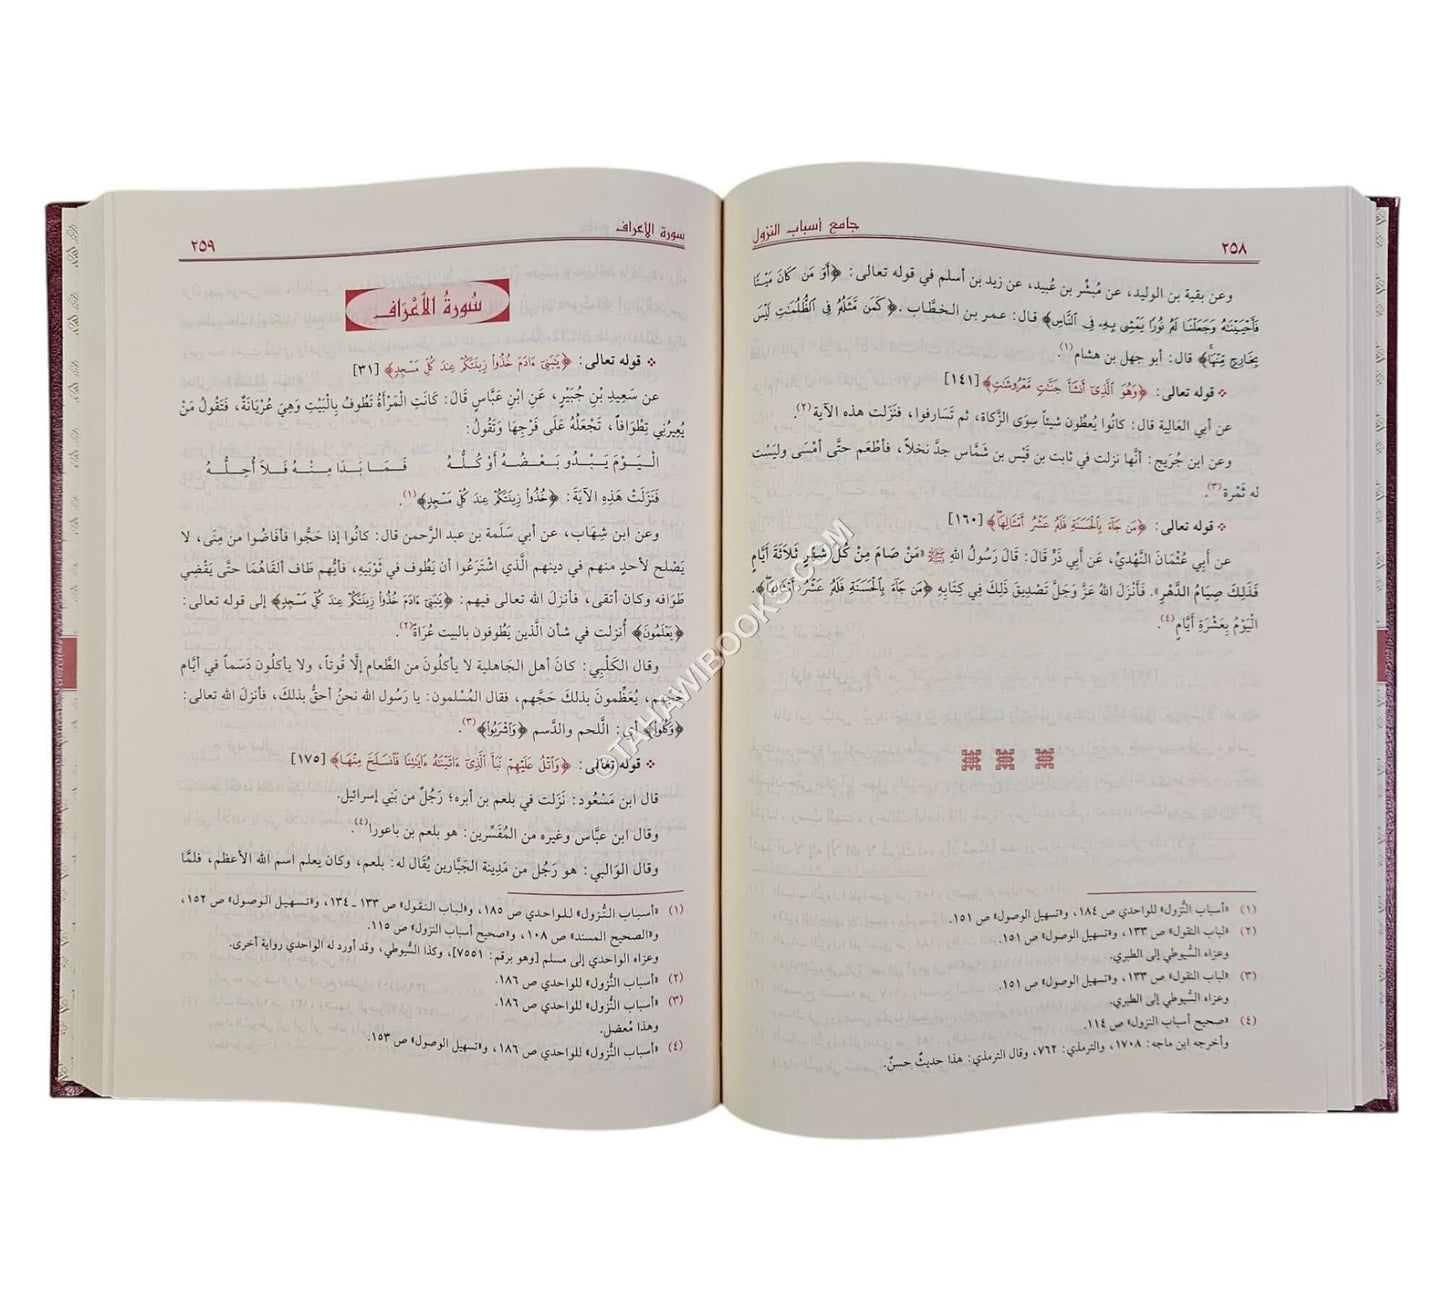 ٢٥٨
جامع أسباب النزول
وعن بقية بن الوليد، عن مُبشِّر بن عُبيد، عن زيد بن أسلم في قوله تعالى: ﴿أَوَ مَن كَانَ مَيْتًا
فَأَحْيَيْنَٰهُ وَجَعَلْنَا لَهُۥ نُورًا يَمْشِى بِهِۦ فِى ٱلنَّاسِ﴾ قال: عمر بن الخطَّاب. ﴿كَمَن مَّثَلُهُۥ فِى ٱلظُّلُمَٰتِ لَيْسَ
بِخَارِجٍ مِّنْهَا﴾ قال: أبو جهل بن هشام(١).
❖ قوله تعالى: ﴿وَهُوَ ٱلَّذِىٓ أَنشَأَ جَنَّٰتٍ مَّعْرُوشَٰتٍ﴾ [١٤١]
عن أبي العَالِية قال: كانُوا يُعطُون شيئاً سِوَى الزَّكاة، ثم تَسَارفوا، فنَزَلت هذه الآية(٢).
وعن ابن جُرَيج: أنَّها نزلت في ثابت بن قَيْس بن شَمَّاس جدَّ نخلاً، فأطْعَم حتَّى أمْسَى وليْسَت
له ثَمْرة(٣).
❖ قوله تعالى: ﴿مَن جَآءَ بِٱلْحَسَنَةِ فَلَهُۥ عَشْرُ أَمْثَالِهَا﴾ [١٦٠]
عن أَبِي عُثْمَانَ النَّهْدِيِّ، عَن أَبِي ذَرٍّ قَالَ: قَالَ رَسُولُ اللهِ ﷺ «مَنْ صَامَ مِنْ كُلِّ شَهْرٍ ثَلاثَةَ أَيَّامٍ
فَذَلِكَ صِيَامُ الدَّهْرِ». فَأَنْزَلَ اللهُ عَزَّ وَجَلَّ تَصْدِيقَ ذَلِكَ فِي كِتَابِهِ ﴿مَن جَآءَ بِٱلْحَسَنَةِ فَلَهُۥ عَشْرُ أَمْثَالِهَا﴾.
الْيَوْمُ بِعَشْرَةِ أَيَّامٍ(٤).
(١) «أسباب النُّزول» للواحدي ص ١٨٤، و«تسهيل الوصول» ص ١٥١.
(٢) «لباب النقول» ص ١٣٣، و«تسهيل الوصول» ص ١٥١.
وعزاه السُّيوطي إلى الطبري.
(٣) «لباب النقول» ص ١٣٣، و«تسهيل الوصول» ص ١٥١.
وعزاه السُّيوطي إلى الطبري.
(٤) «صحيح أسباب النزول» ص ١١٤.
وأخرجه ابن ماجه: ١٧٠٨، والترمذي: ٧٦٢، وقال الترمذي: هذا حديثٌ حسنٌ.
سورة الأعراف
٢٥٩
سُورَةُ الأَعْرَافِ
❖ قوله تعالى: ﴿يَٰبَنِىٓ ءَادَمَ خُذُوا۟ زِينَتَكُمْ عِندَ كُلِّ مَسْجِدٍ﴾ [٣١]
عن سَعِيدِ بْنِ جُبَيْرٍ، عَنِ ابْنِ عَبَّاسٍ قَالَ: كَانَتِ الْمَرْأَةُ تَطُوفُ بِالْبَيْتِ وَهِيَ عُرْيَانَةٌ، فَتَقُولُ مَنْ
يُعِيرُنِي تِطْوَافاً، تَجْعَلُهُ عَلَى فَرْجِهَا وَتَقُولُ:
الْيَوْمَ يَبْدُو بَعْضُهُ أَوْ كُلُّهُ     فَمَا بَدَا مِنْهُ فَلاَ أُحِلُّهُ
فَنَزَلَتْ هَذِهِ الآيَةَ: ﴿خُذُوا۟ زِينَتَكُمْ عِندَ كُلِّ مَسْجِدٍ﴾(١).
وعن ابن شِهَاب، عن أبي سَلَمة بن عبد الرَّحمن قال: كانُوا إذا حَجُّوا فأفَاضُوا من مِنَى، لا
يَصْلح لأحدٍ منهم في دينهم الَّذي اشْتَرعُوا أن يَطُوف في ثَوْبَيه، فأيُّهم طَاف ألقَاهُمَا حتَّى يَقْضِي
طَوَافه وكان أتقى، فأنزلَ الله تعالى فيهم: ﴿يَٰبَنِىٓ ءَادَمَ خُذُوا۟ زِينَتَكُمْ عِندَ كُلِّ مَسْجِدٍ﴾ إلى قوله تعالى:
﴿يَعْلَمُونَ﴾ أُنزلت في شأن الَّذين يَطُوفون بالبيت عُرَاةً(٢).
وقال الكَلْبِي: كانَ أهل الجَاهلية لا يأكلُونَ من الطَّعام إلَّا قُوتاً، ولا يأكلُون دَسَماً في أيَّام
حجِّهم، يُعَظِّمونَ بذلكَ حَجَّهم، فقال المُسْلمون: يا رَسُول الله نحنُ أحقُّ بذلكَ، فأنزلَ الله تعالى:
﴿وَكُلُوا۟﴾ أي: الَّلحم والدَّسم ﴿وَٱشْرَبُوا۟﴾(٣).
❖ قوله تعالى: ﴿وَٱتْلُ عَلَيْهِمْ نَبَأَ ٱلَّذِىٓ ءَاتَيْنَٰهُ ءَايَٰتِنَا فَٱنسَلَخَ مِنْهَا﴾ [١٧٥]
قال ابن مَسْعُود: نَزَلت في بلعم بن أبره؛ رَجُلٌ من بَني إسرائيل.
وقال ابن عبَّاس وغيره من المُفَسِّرين: هو بلعم بن باعورا(٤).
وقال الوَالبي: هو رَجُل من مَدِينة الجَبَّارين يُقَال له: بلعم، وكان يعلم اسم الله الأعظم، فلمَّا
(١) «أسباب النُّزول» للواحدي ص ١٨٥، و«لباب النقول» ص ١٣٣ـ ١٣٤، و«تسهيل الوصول» ص ١٥٢،
و«الصحيح المسند» ص ١٠٨، و«صحيح أسباب النزول» ص ١١٥.
وعزاه الواحدي إلى مسلم [وهو برقم: ٧٥٥١]، وكذا السُّيوطي، وقد أورد له الواحدي رواية أخرى.
(٢) «أسباب النُّزول» للواحدي ص ١٨٦.
(٣) «أسباب النُّزول» للواحدي ص ١٨٦.
وهذا مُعضل.
(٤) «أسباب النُّزول» للواحدي ص ١٨٦، و«تسهيل الوصول» ص ١٥٣.
©TAHAWIBOOKS.COM